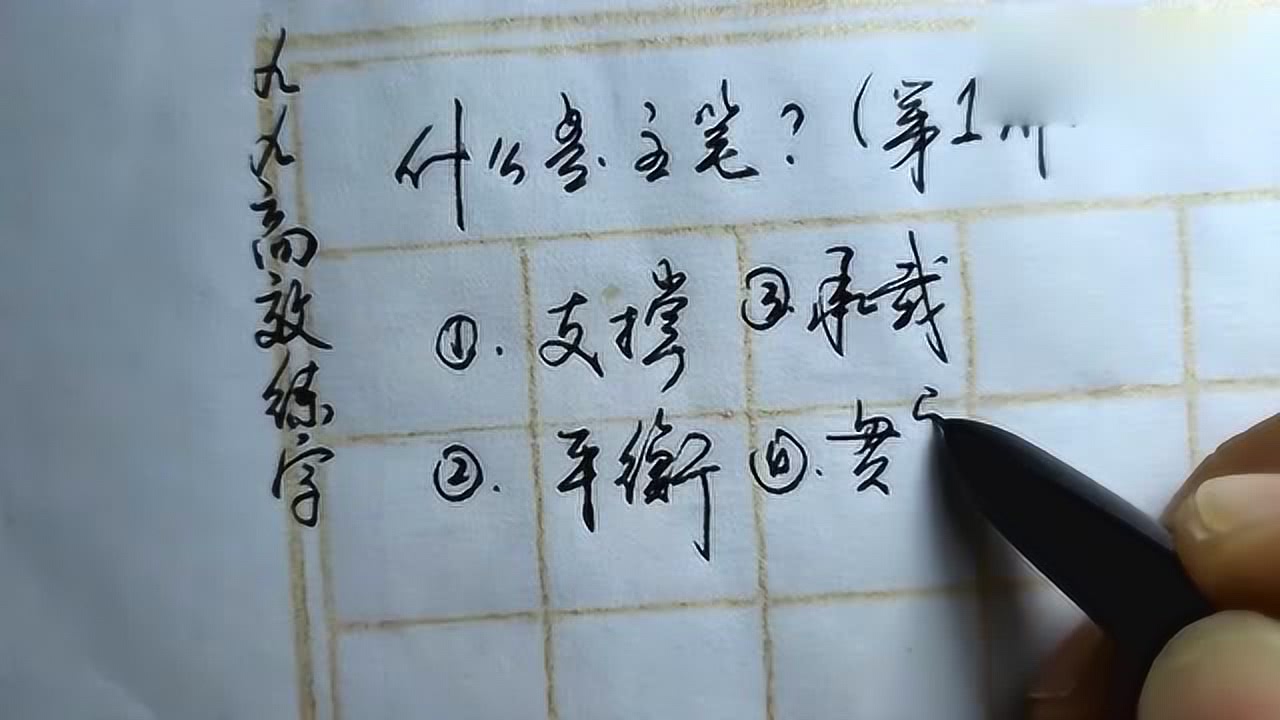 九九高效练字
什么是主笔?(第1
①.支撑 ③.承载
②.平衡 ④.贯